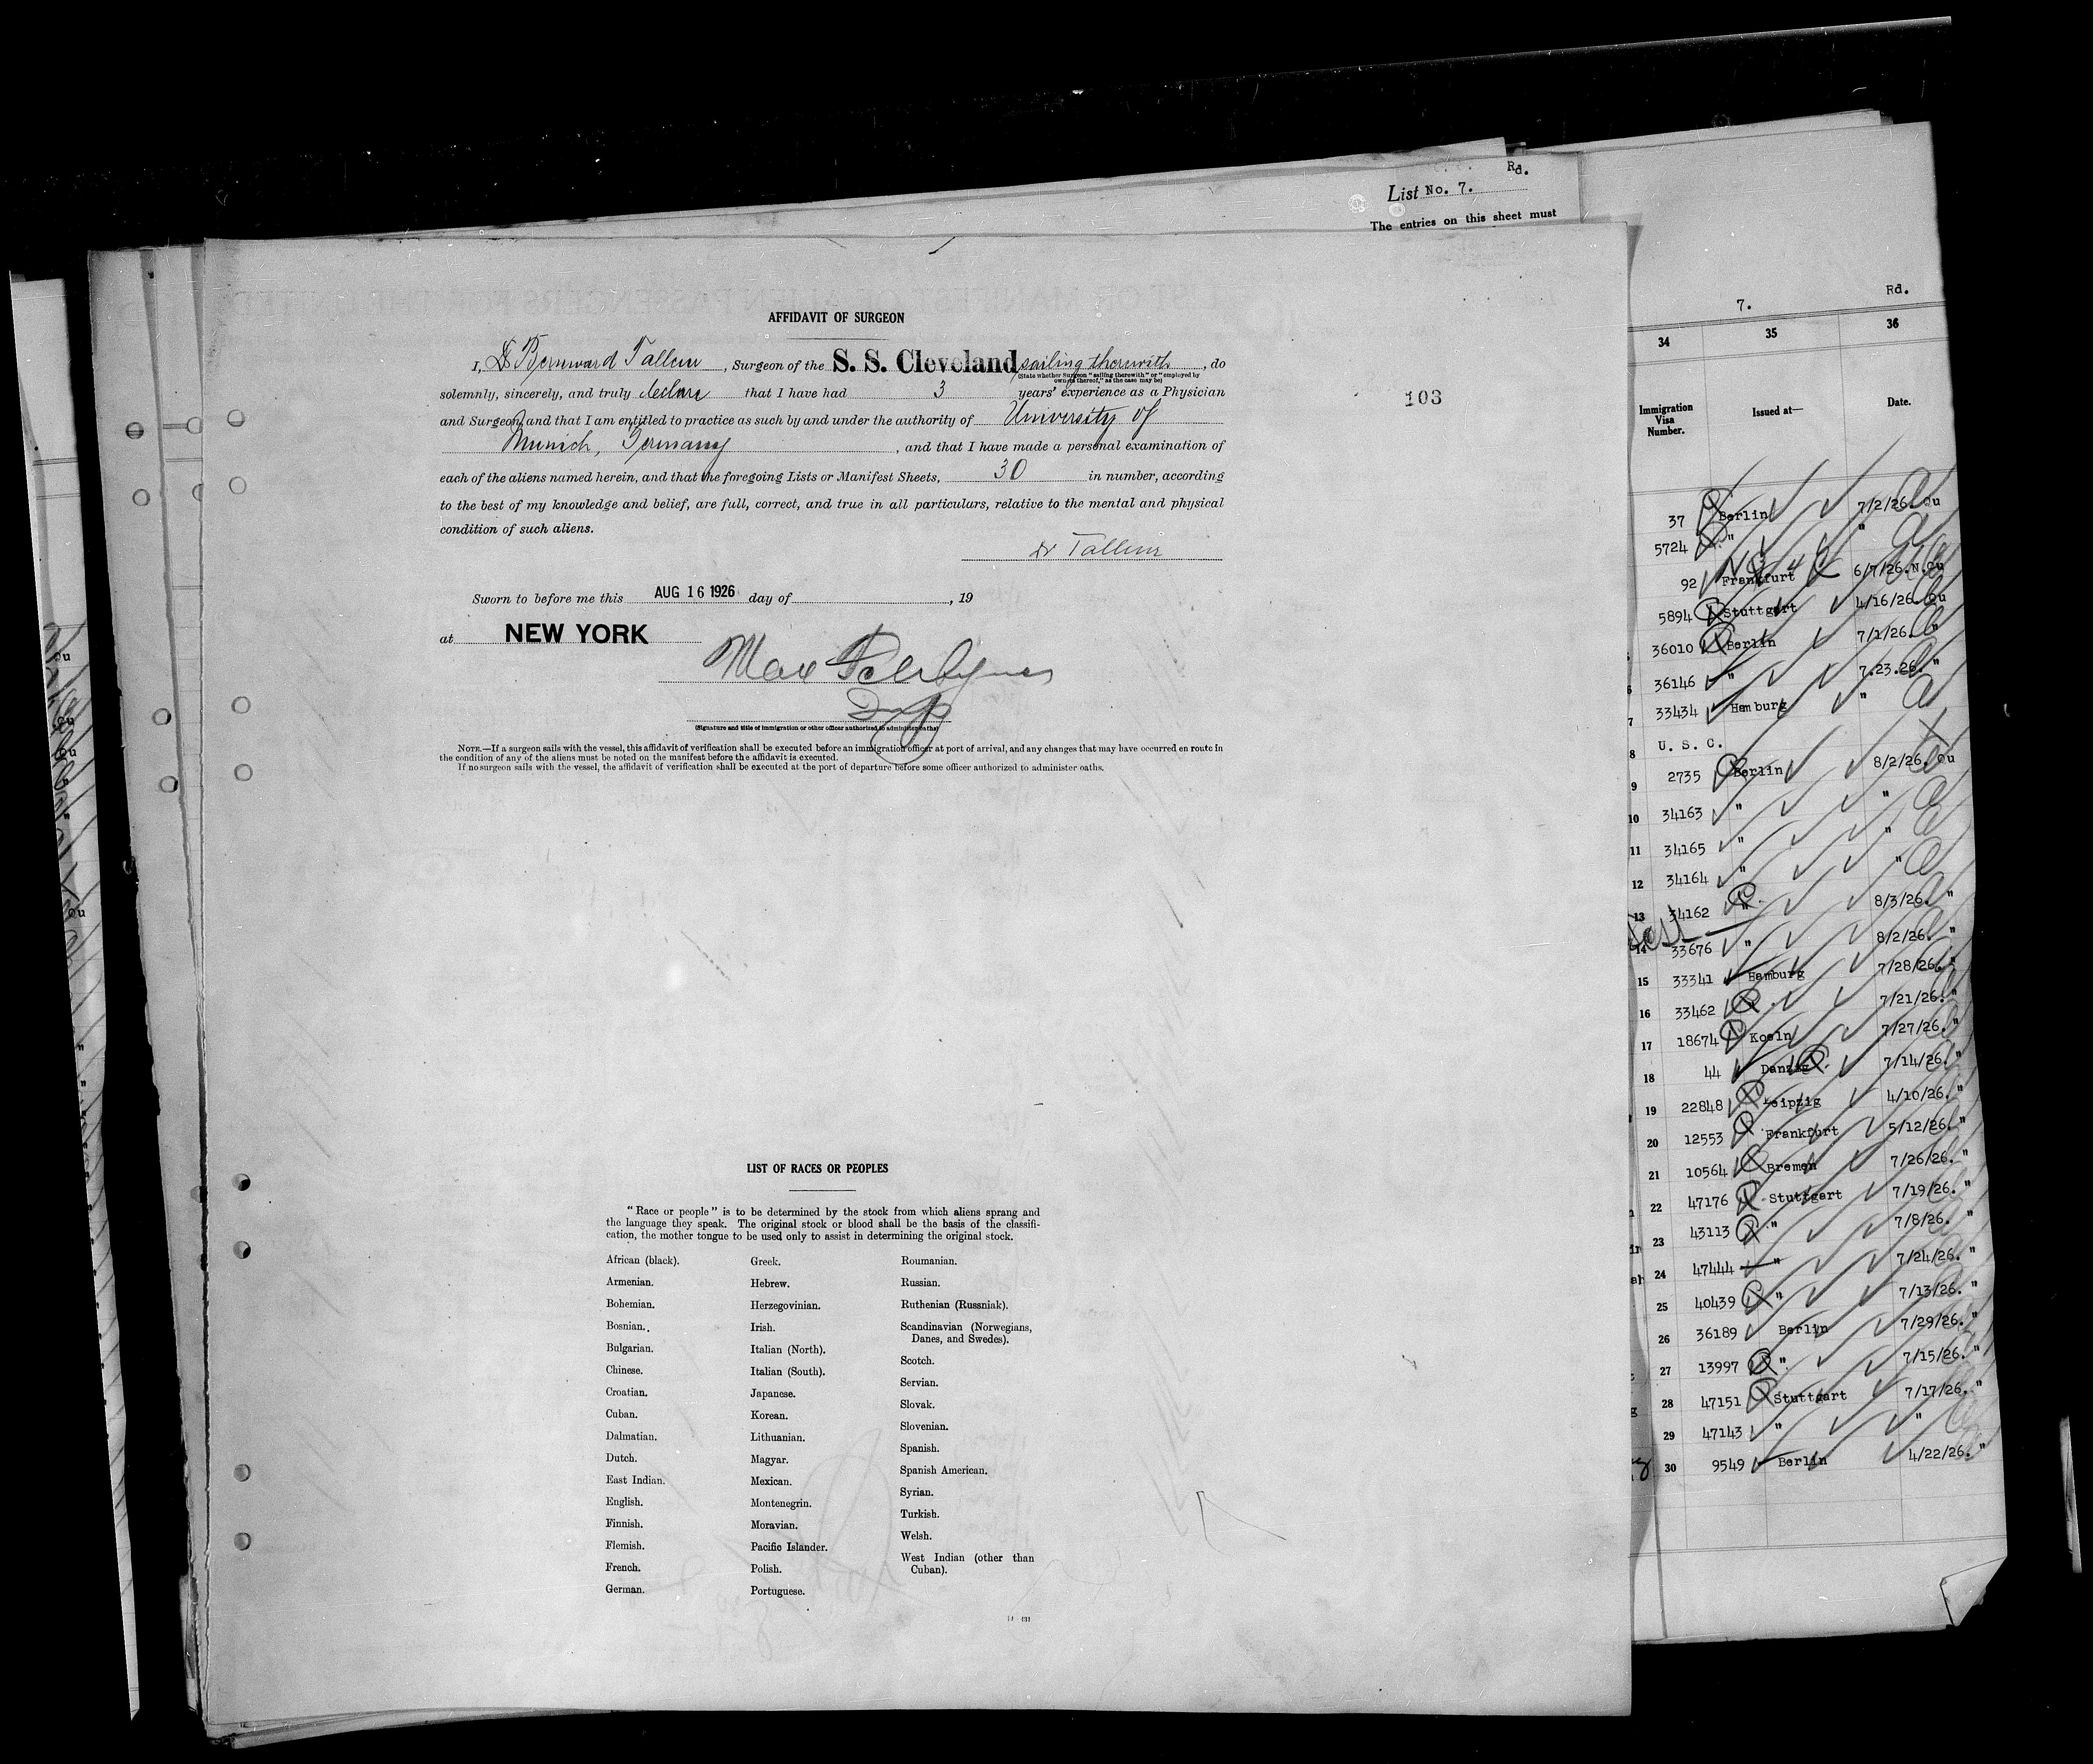 Rd.
List No. 7.
The entries on this sheet must
AFFIDAVIT OF SURGEON
I, Dr Bernward Tallem, Surgeon of the S. S. Cleveland sailing therewith, do
(State whether Surgeon "sailing therewith" or "employed by
owners thereof," as the case may be)
solemnly, sincerely, and truly declare that I have had 3 years' experience as a Physician
and Surgeon and that I am entitled to practice as such by and under the authority of University of
Munich, Germany, and that I have made a personal examination of
each of the aliens named herein, and that the foregoing Lists or Manifest Sheets, 30 in number, according
to the best of my knowledge and belief, are full, correct, and true in all particulars, relative to the mental and physical
condition of such aliens.
Dr Tallem
Sworn to before me this AUG 16 1926 day of , 19
at NEW YORK
Max
Insp
(Signature and title of immigration or other officer authorized to administer oaths)
NOTE.—If a surgeon sails with the vessel, this affidavit of verification shall be executed before an immigration officer at port of arrival, and any changes that may have occurred en route in
the condition of any of the aliens must be noted on the manifest before the affidavit is executed.
If no surgeon sails with the vessel, the affidavit of verification shall be executed at the port of departure before some officer authorized to administer oaths.
103
LIST OF RACES OR PEOPLES
"Race or people" is to be determined by the stock from which aliens sprang and
the language they speak. The original stock or blood shall be the basis of the classifi-
cation, the mother tongue to be used only to assist in determining the original stock.
African (black).
Armenian.
Bohemian.
Bosnian.
Bulgarian.
Chinese.
Croatian.
Cuban.
Dalmatian.
Dutch.
East Indian.
English.
Finnish.
Flemish.
French.
German.
Greek.
Hebrew.
Herzegovinian.
Irish.
Italian (North).
Italian (South).
Japanese.
Korean.
Lithuanian.
Magyar.
Mexican.
Montenegrin.
Moravian.
Pacific Islander.
Polish.
Portuguese.
Roumanian.
Russian.
Ruthenian (Russniak).
Scandinavian (Norwegians,
Danes, and Swedes).
Scotch.
Servian.
Slovak.
Slovenian.
Spanish.
Spanish American.
Syrian.
Turkish.
Welsh.
West Indian (other than
Cuban).
7. Rd.
34 35 36
Immigration
Visa
Number.
Issued at—
Date.
37 Berlin 7/2/26. Qu
5724 " "
92 Frankfurt 6/7/26. N.Qu
5894 Stuttgart 4/16/26. Qu
36010 Berlin 7/1/26. "
36146 " 7.23.26. "
7 33434 Hamburg "
8 U. S. C.
9 2735 Berlin 8/2/26. Qu
10 34163 " "
11 34165 " "
12 34164 " "
13 34162 " 8/3/26. "
14 33676 " 8/2/26. "
15 33341 Hamburg 7/28/26. "
16 33462 " 7/21/26. "
17 18674 Koeln 7/27/26. "
18 44 Danzig 7/14/26. "
19 22848 Leipzig 4/10/26. "
20 12553 Frankfurt 5/12/26. "
21 10564 Bremen 7/26/26. "
22 47176 Stuttgart 7/19/26. "
23 43113 " 7/8/26. "
24 47444 " 7/24/26. "
25 40439 " 7/13/26. "
26 36189 Berlin 7/29/26. "
27 13997 " 7/15/26. "
28 47151 Stuttgart 7/17/26. "
29 47143 " "
30 9549 Berlin 4/22/26. "